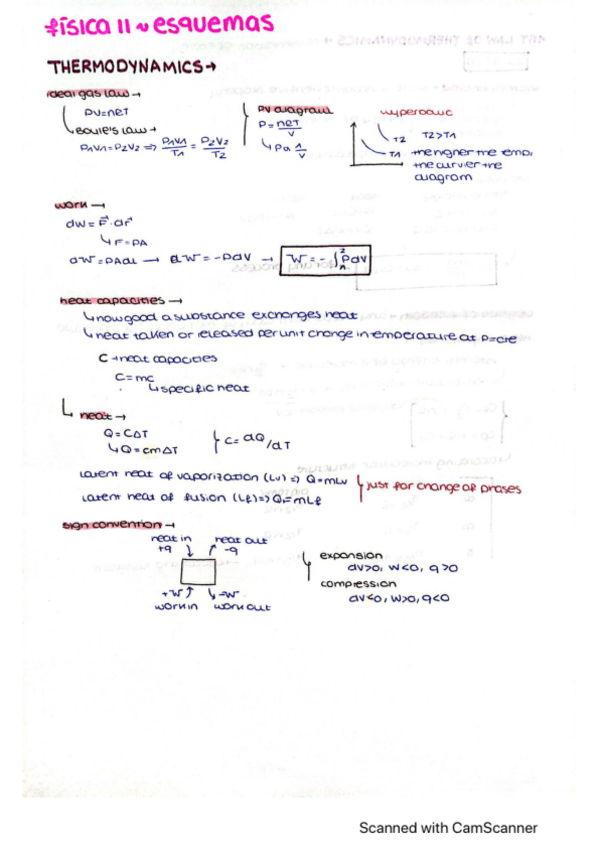 física II ~ esquemas
THERMODYNAMICS →
ideal gas law →
PV=nRT
Boyle's law →
P₁V₁=P₂V₂ => P₁V₁/T₁ = P₂V₂/T₂
PV diagram
P = nRT/V
↳ P α 1/V
hyperbolic
T2 T2>T1
T1 the higher the temp.
the curvier the
diagram
work →
dW = F⃗·dr⃗
↳ F=PA
dW=PAdL → dW=-PdV → W = -∫ PdV
heat capacities →
↳ how good a substance exchanges heat
↳ heat taken or released per unit change in temperature at P=cte
C → heat capacities
C=mc
↳ specific heat
↳ heat →
Q=CΔT
↳ Q=cmΔT
C= dQ/dT
latent heat of vaporization (Lv) => Q=mLv
latent heat of fusion (Lf) => Q=mLf
just for change of phases
sign convention →
heat in heat out
+q -q
+W -W
work in work out
expansion
dV>0, W<0, q>0
compression
dV<0, W>0, q<0
Scanned with CamScanner